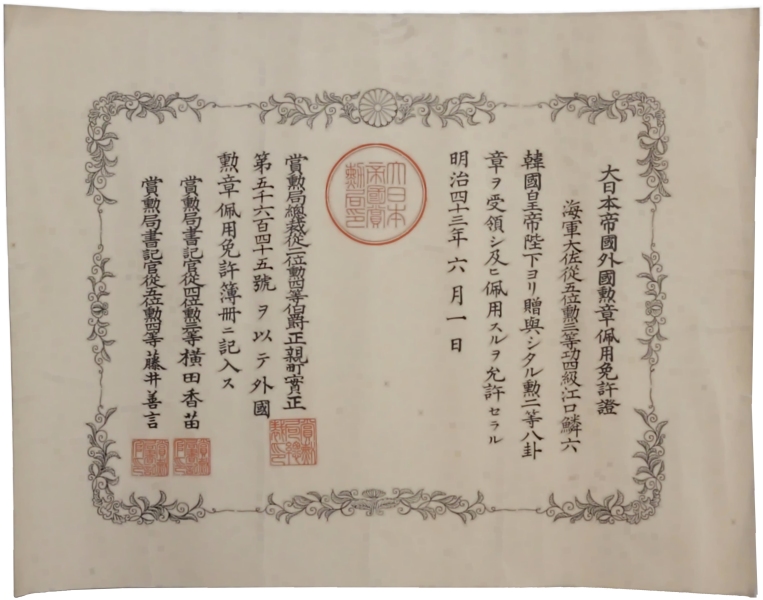 大日本帝國外國勲章佩用免許證
海軍大佐從五位勲三等功四級江口鱗六
韓國皇帝陛下ヨリ贈與シタル勲二等八卦
章ヲ受領シ及ヒ佩用スルヲ允許セラル
明治四十三年六月一日
大日本
帝國賞
勲局印
賞勲局總裁從二位勲四等伯爵正親町實正
第五千六百四十五號ヲ以テ外國
勲章佩用免許簿冊ニ記入ス
賞勲局書記官從四位勲三等横田香苗
賞勲局書記官從五位勲四等藤井善言